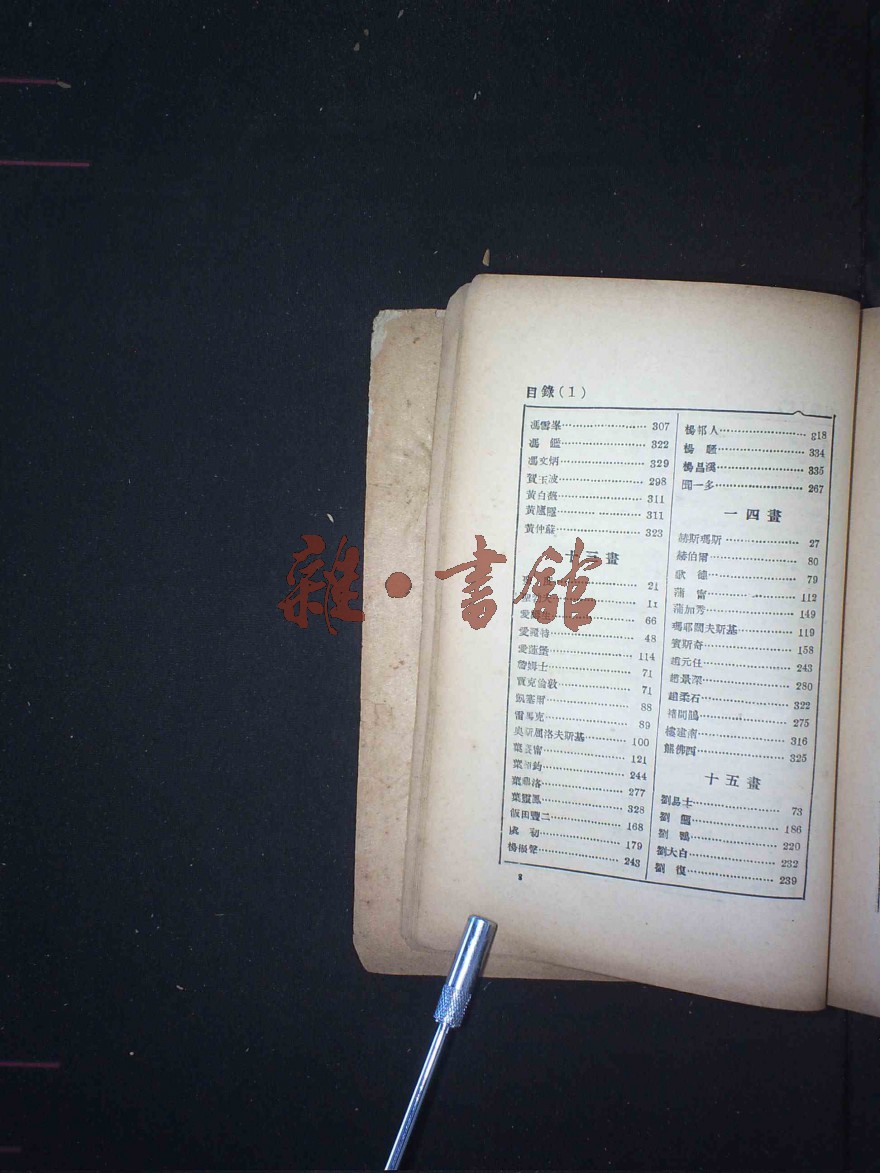 目錄(1)
馮雪峯 307
馮 鑑 322
馮文炳 329
賀玉波 298
黃白薇 311
黃廬隱 311
黃仲蘇 323
十三畫
21
11
愛 66
愛羅特 48
愛蓮堡 114
詹姆士 71
賈克倫敦 71
凱塞爾 88
雷馬克 89
奧斯屈洛夫斯基 100
葉 甯 121
葉 鈞 244
葉鼎洛 277
葉靈鳳 328
飯田豐二 168
虞 初 179
楊振聲 243
楊邨人 318
楊 騷 334
楊昌溪 335
聞一多 267
一四畫
赫斯瑪斯 27
赫伯爾 80
歌 德 79
蒲 甯 112
蒲加秀 149
瑪耶闊夫斯基 119
賓斯奇 158
趙元任 243
趙景深 280
趙柔石 322
褚問鵑 275
樓建南 316
熊佛西 325
十五畫
劉易士 73
劉 勰 186
劉 鶚 220
劉大白 232
劉 復 239
8
雜·書館